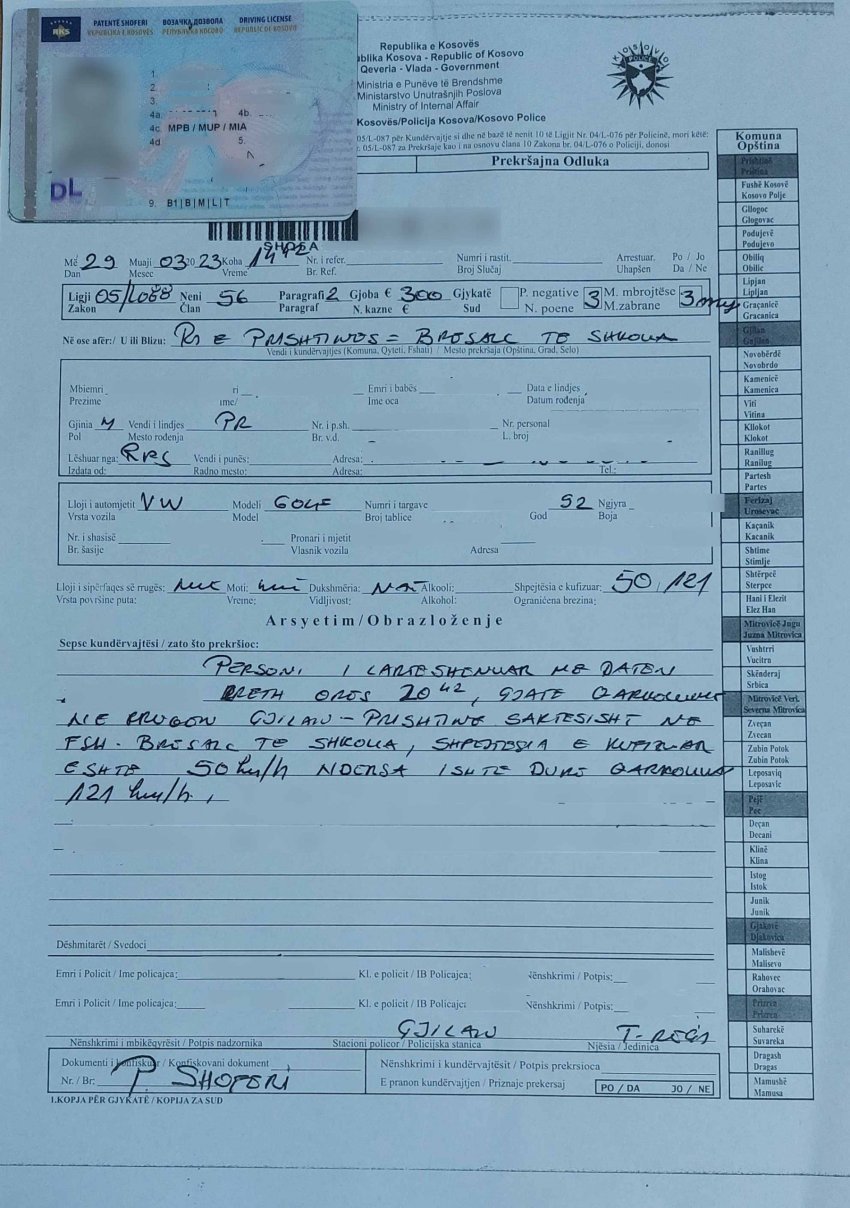 RKS
PATENTË SHOFERI ВОЗАЧКА ДОЗВОЛА DRIVING LICENSE
REPUBLIKA E KOSOVËS РЕПУБЛИКА КОСОВО REPUBLIC OF KOSOVO
1.
2.
3.
4a. 4b.
4c. MPB / MUP / MIA
4d 5.
DL
9. B1 | B | M | L | T
Republika e Kosovës
ublika Kosova - Republic of Kosovo
Qeveria - Vlada - Government
Ministria e Punëve të Brendshme
Ministarstvo Unutrašnjih Poslova
Ministry of Internal Affair
Kosovës/Policija Kosova/Kosovo Police
KOSOVO
POLICE
05/L-087 për Kundërvajtje si dhe në bazë të nenit 10 të Ligjit Nr. 04/L-076 për Policinë, mori këtë:
05/L-087 za Prekršaje kao i na osnovu člana 10 Zakona br. 04/L-076 o Policiji, donosi
Prekršajna Odluka
Më 29 Muaji 03 2023 Koha Nr. i refer. Numri i rastit. Arrestuar. Po / Jo
Dan Mesec Vreme Br. Ref. Broj Slučaj Uhapšen Da / Ne
Ligji 05/L088 Neni 56 Paragrafi 2 Gjoba € 300 Gjykatë P. negative 3 M. mbrojtëse 3 muj
Zakon Član Paragraf N. kazne € Sud N. poene M.zabrane
Në ose afër:/ U ili Blizu: RR E PRISHTINES = BRESALC TE SHKOLLA
Vendi i kundërvajtjes (Komuna, Qyteti, Fshati) / Mesto prekršaja (Opština, Grad, Selo)
Mbiemri ri Emri i babës Data e lindjes
Prezime ime/ Ime oca Datum rođenja
Gjinia M Vendi i lindjes PR Nr. i p.sh. Nr. personal
Pol Mesto rođenja Br. v.d. L. broj
Lëshuar nga: RKS Vendi i punës: Adresa:
Izdata od: Radno mesto: Adresa: Tel.:
Lloji i automjetit VW Modeli GOLF Numri i targave 92 Ngjyra
Vrsta vozila Model Broj tablice God Boja
Nr. i shasisë Pronari i mjetit
Br. šasije Vlasnik vozila Adresa
Lloji i sipërfaqes së rrugës: Moti: Dukshmëria: Alkooli: Shpejtësia e kufizuar: 50 / 121
Vrsta površine puta: Vreme: Vidljivost: Alkohol: Ograničena brezina:
Arsyetim/Obrazloženje
Sepse kundërvajtësi / zato što prekršioc:
PERSONI I LARTESHENUAR ME DATEN
RRETH ORES 20 42, GJATE QARKULLIMIT
NE RRUGEN GJILAN - PRISHTINE SAKTESISHT NE
FSH. BRESALC TE SHKOLLA, SHPEJTESIA E KUFIZUAR
ESHTE 50 km/h NDERSA ISHTE DUKE QARKULLUAR
121 km/h,
Dëshmitarët / Svedoci
Emri i Policit / Ime policajca: Kl. e policit / IB Policajca: Nënshkrimi / Potpis:
Emri i Policit / Ime policajca: Kl. e policit / IB Policajca: Nënshkrimi / Potpis:
GJILAN
Nënshkrimi i mbikëqyrësit / Potpis nadzornika Stacioni policor / Policijska stanica Njësia / Jedinica
Dokumenti i konfiskuar / Konfiskovani dokument Nënshkrimi i kundërvajtësit / Potpis prekrsioca
Nr. / Br: P. SHOFERI E pranon kundërvajtjen / Priznaje prekersaj PO / DA JO / NE
I.KOPJA PËR GJYKATË / KOPIJA ZA SUD
Komuna
Opština
Prishtinë
Priština
Fushë Kosovë
Kosovo Polje
Gllogoc
Glogovac
Podujevë
Podujevo
Obiliq
Obilic
Lipjan
Lipljan
Graçanicë
Gracanica
Gjilan
Gnjilan
Novobërdë
Novobrdo
Kamenicë
Kamenica
Viti
Vitina
Kllokot
Klokot
Ranillug
Ranilug
Partesh
Partes
Ferizaj
Urosevac
Kaçanik
Kacanik
Shtime
Stimlje
Shtërpcë
Sterpce
Hani i Elezit
Elez Han
Mitrovicë Jugu
Juzna Mitrovica
Vushtrri
Vucitrn
Skënderaj
Srbica
Mitrovicë Veri.
Severna Mitrovica
Zveçan
Zvecan
Zubin Potok
Zubin Potok
Leposaviq
Leposavic
Pejë
Pec
Deçan
Decani
Klinë
Klina
Istog
Istok
Junik
Junik
Gjakovë
Djakovica
Malishevë
Malisevo
Rahovec
Orahovac
Prizren
Prizren
Suharekë
Suvareka
Dragash
Dragas
Mamushë
Mamusa